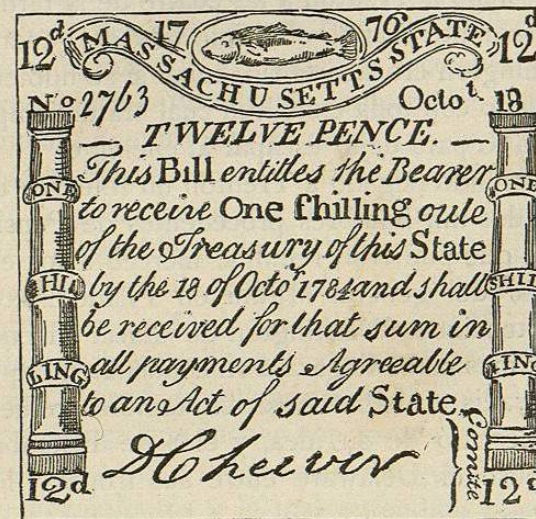 12d 17 76 12d
MASSACHUSETTS STATE
No 2763 Octor. 18
TWELVE PENCE.
This Bill entitles the Bearer
to receive One ſhilling oute
of the Treasury of this State
by the 18 of Octor 1784 and shall
be received for that sum in
all payments Agreeable
to an Act of said State.
DCheever
Comite
ONE
SHIL
LING
ONE
SHIL
LING
12d 12d